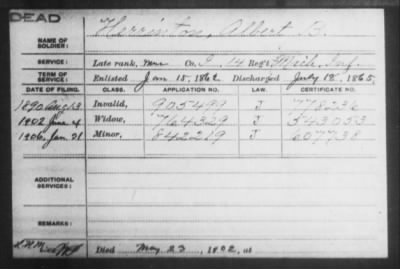 DEAD
NAME OF SOLDIER: Herrington, Albert B.
SERVICE: Late rank, Co. I, 14 Reg't Mich. Inf.
TERM OF SERVICE: Enlisted Jan 15, 1862 Discharged July 18, 1865
DATE OF FILING. CLASS. APPLICATION NO. LAW. CERTIFICATE NO.
1890 Aug 13 Invalid, 905499 J 778236
1902 June 4 Widow, 764329 J 543053
1906, Jan. 31 Minor, 842219 J 607738
ADDITIONAL SERVICES:
REMARKS:
Died May 23, 1902, at